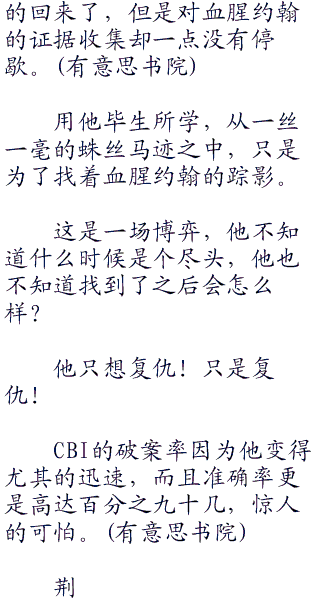 的回来了，但是对血腥约翰
的证据收集却一点没有停
歇。(有意思书院)
用他毕生所学，从一丝
一毫的蛛丝马迹之中，只是
为了找着血腥约翰的踪影。
这是一场博弈，他不知
道什么时候是个尽头，他也
不知道找到了之后会怎么
样？
他只想复仇！只是复
仇！
CBI的破案率因为他变得
尤其的迅速，而且准确率更
是高达百分之九十几，惊人
的可怕。(有意思书院)
荆